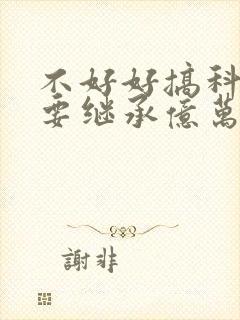 不好好搞科
要继承億萬
謝非